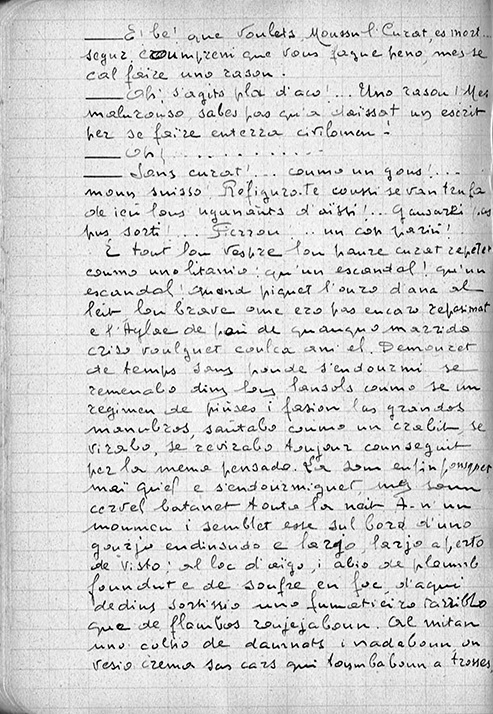 — E! be! que voulets, Moussu l. Curat, es mort...
segur, coumpreni que vous fague peno, mes se
cal faire uno rason.
— Oh! s'agits pla d'aco!... Uno rason! Mes
malurouso, sabes pas qu'a daissat un escrit
per se faire enterra civilomen!
— Oh! . . . . . . . . .
— Sans curat!... coumo un gous!...
moun suisso. Refiguro-te coussi se van trufa
de ieu lous ugunauts d'aissi!... Gausarei pus
pus sorti!... Ferrou ... un cop pariu!
E tout lou vespre lou paure curat repetet
coumo uno litanio: qu'un escandal! qu'un
escandal! Quand piquet l'ouro d'ana al
leit lou brave ome ero pas encaro repasimat
e l'Aglae de pou de quanquo marrido
criso voulguet coulca am el. Demouret
de temps sans poude s'endourmi se
remenabo dins lous lansols coumo se un
regimen de piuses i fasion las grandos
manubros, sautabo coumo un crabit se
virabo, se revirabo toujour counseguit
per la memo pensado. La som enfin pousquet
mai qu'el e s'endourmiguet, mes soun
cervel batanet touto la neit. A-n'un
moumen i semblet esse sul bord d'uno
gourjo endinsado e larjo, larjo a perto
de visto; al loc d'aigo, i abio de ploumb
foundut e de soufre en foc, d'aqui
dedins sortissio uno fumatieiro tarriblo
que de flambos roujejaboun. Al mitan
uno colho de damnats i nadaboun, on
vesio crema sas cars qui toumbaboun a trosses